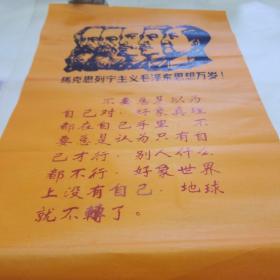 馬克思列宁主义毛泽东思想万岁！
不要总是以为
自己对，好象真理
都在自己手里。不
要总是认为只有自
己才行，别人什么
都不行，好象世界
上没有自己，地球
就不轉了。